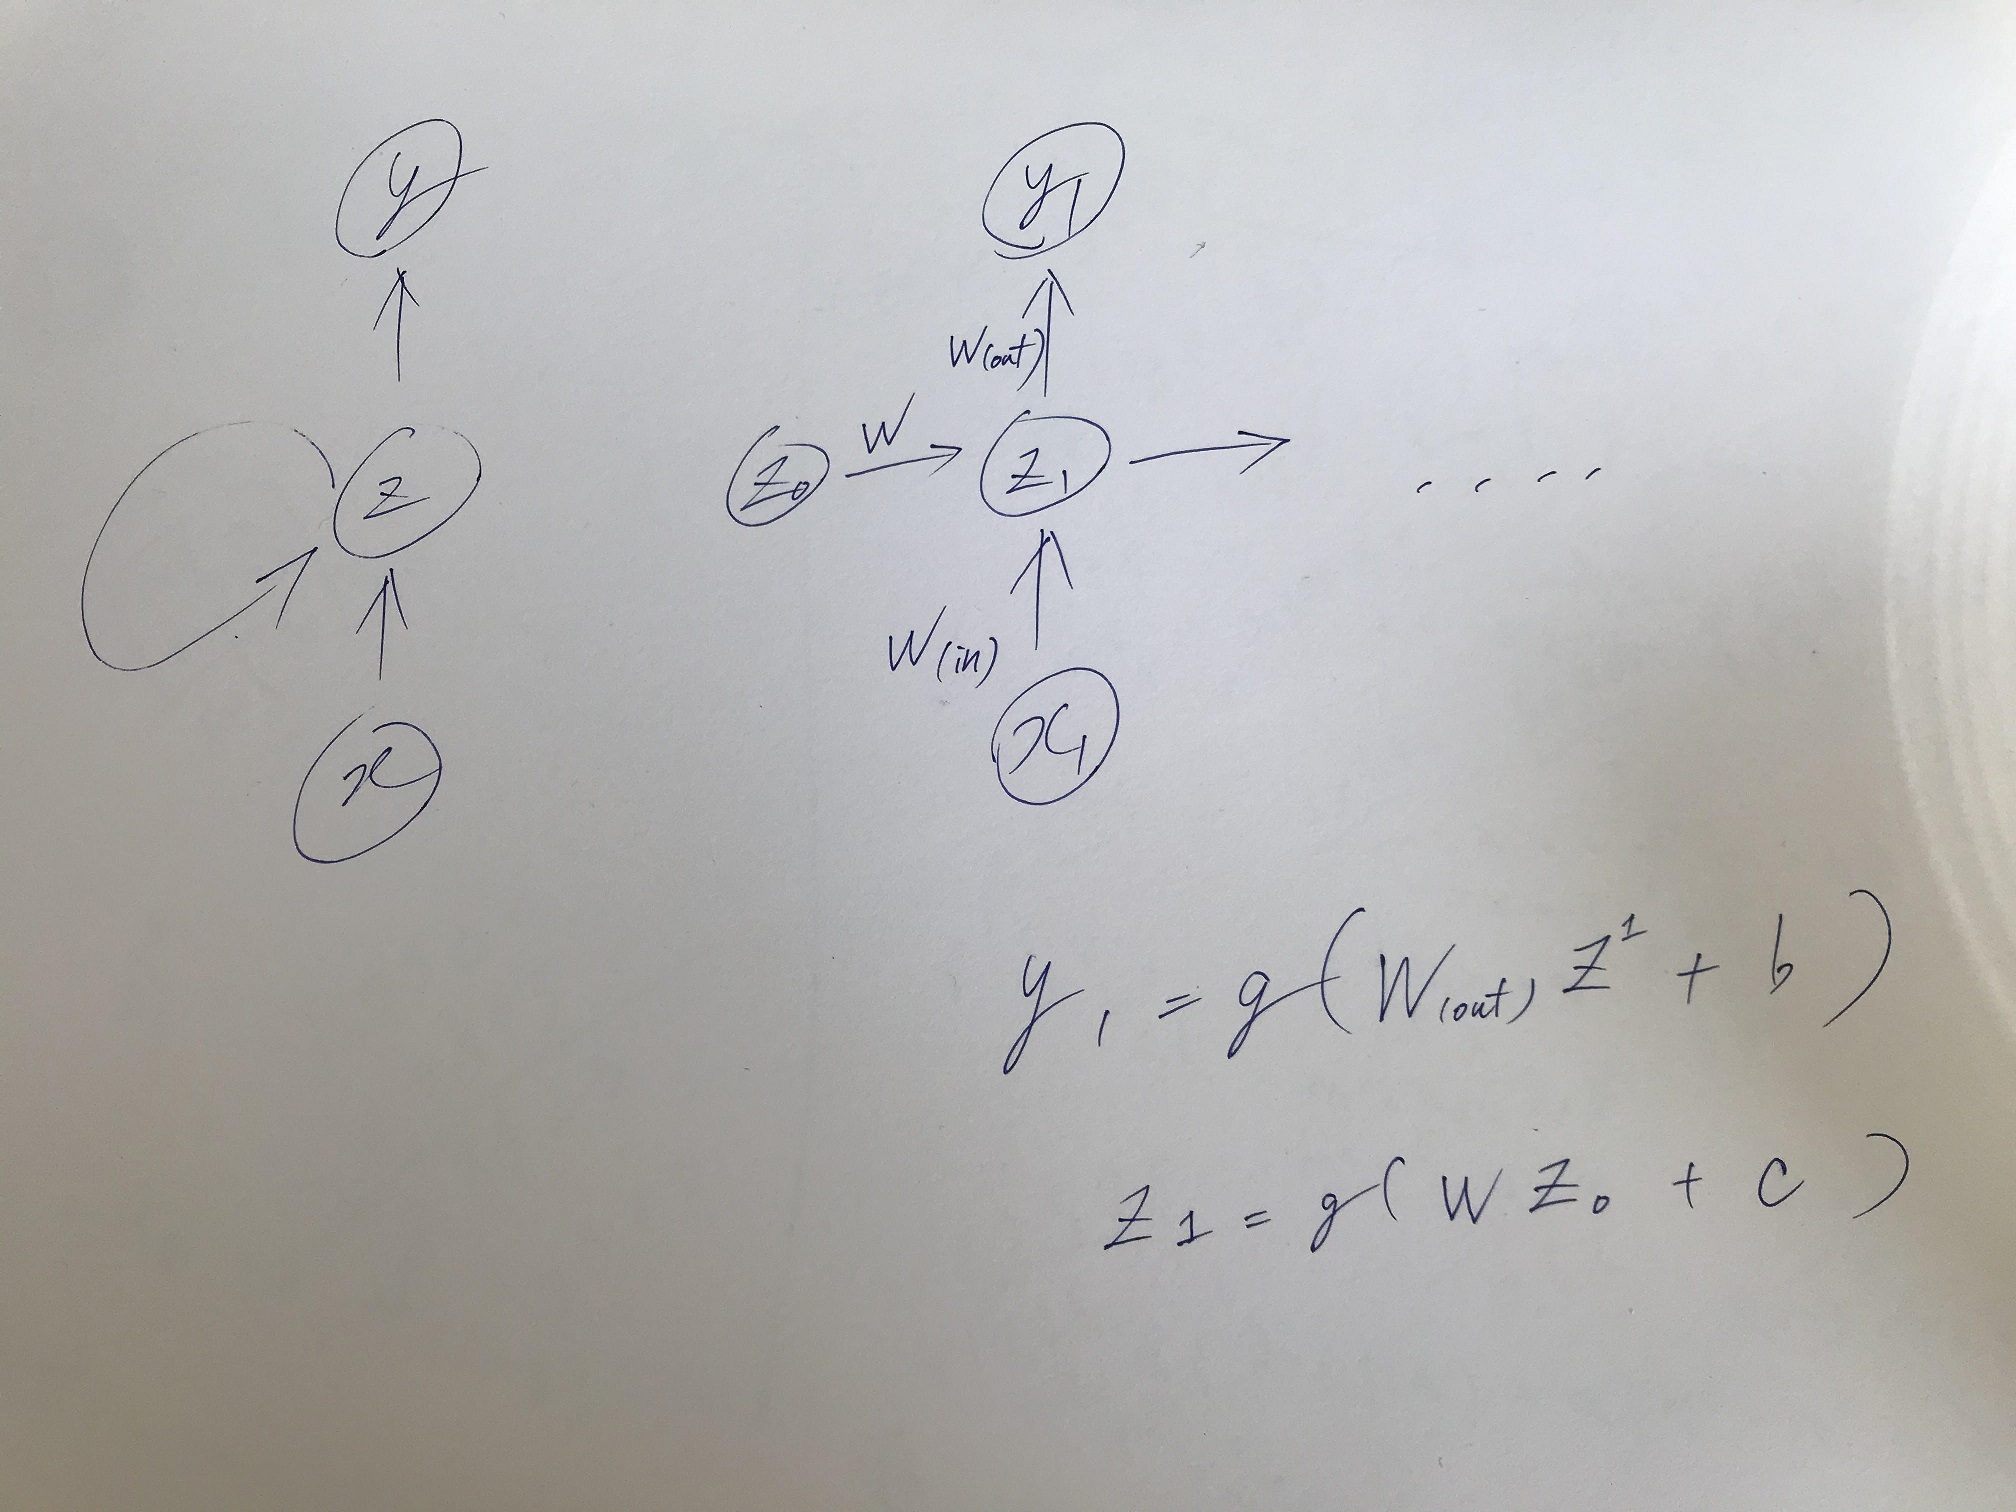 y
y1
W(out)
z
z0
W
z1
. . . .
W(in)
x
x1
y1 = g(W(out) z¹ + b)
z1 = g(W z0 + c)